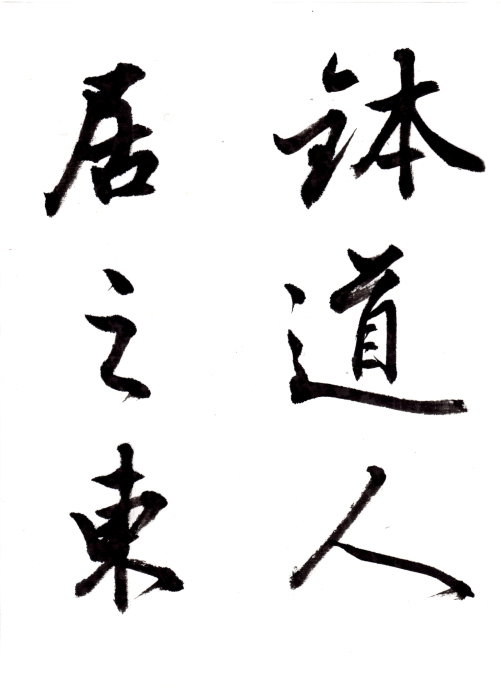 鉢道人
居之東